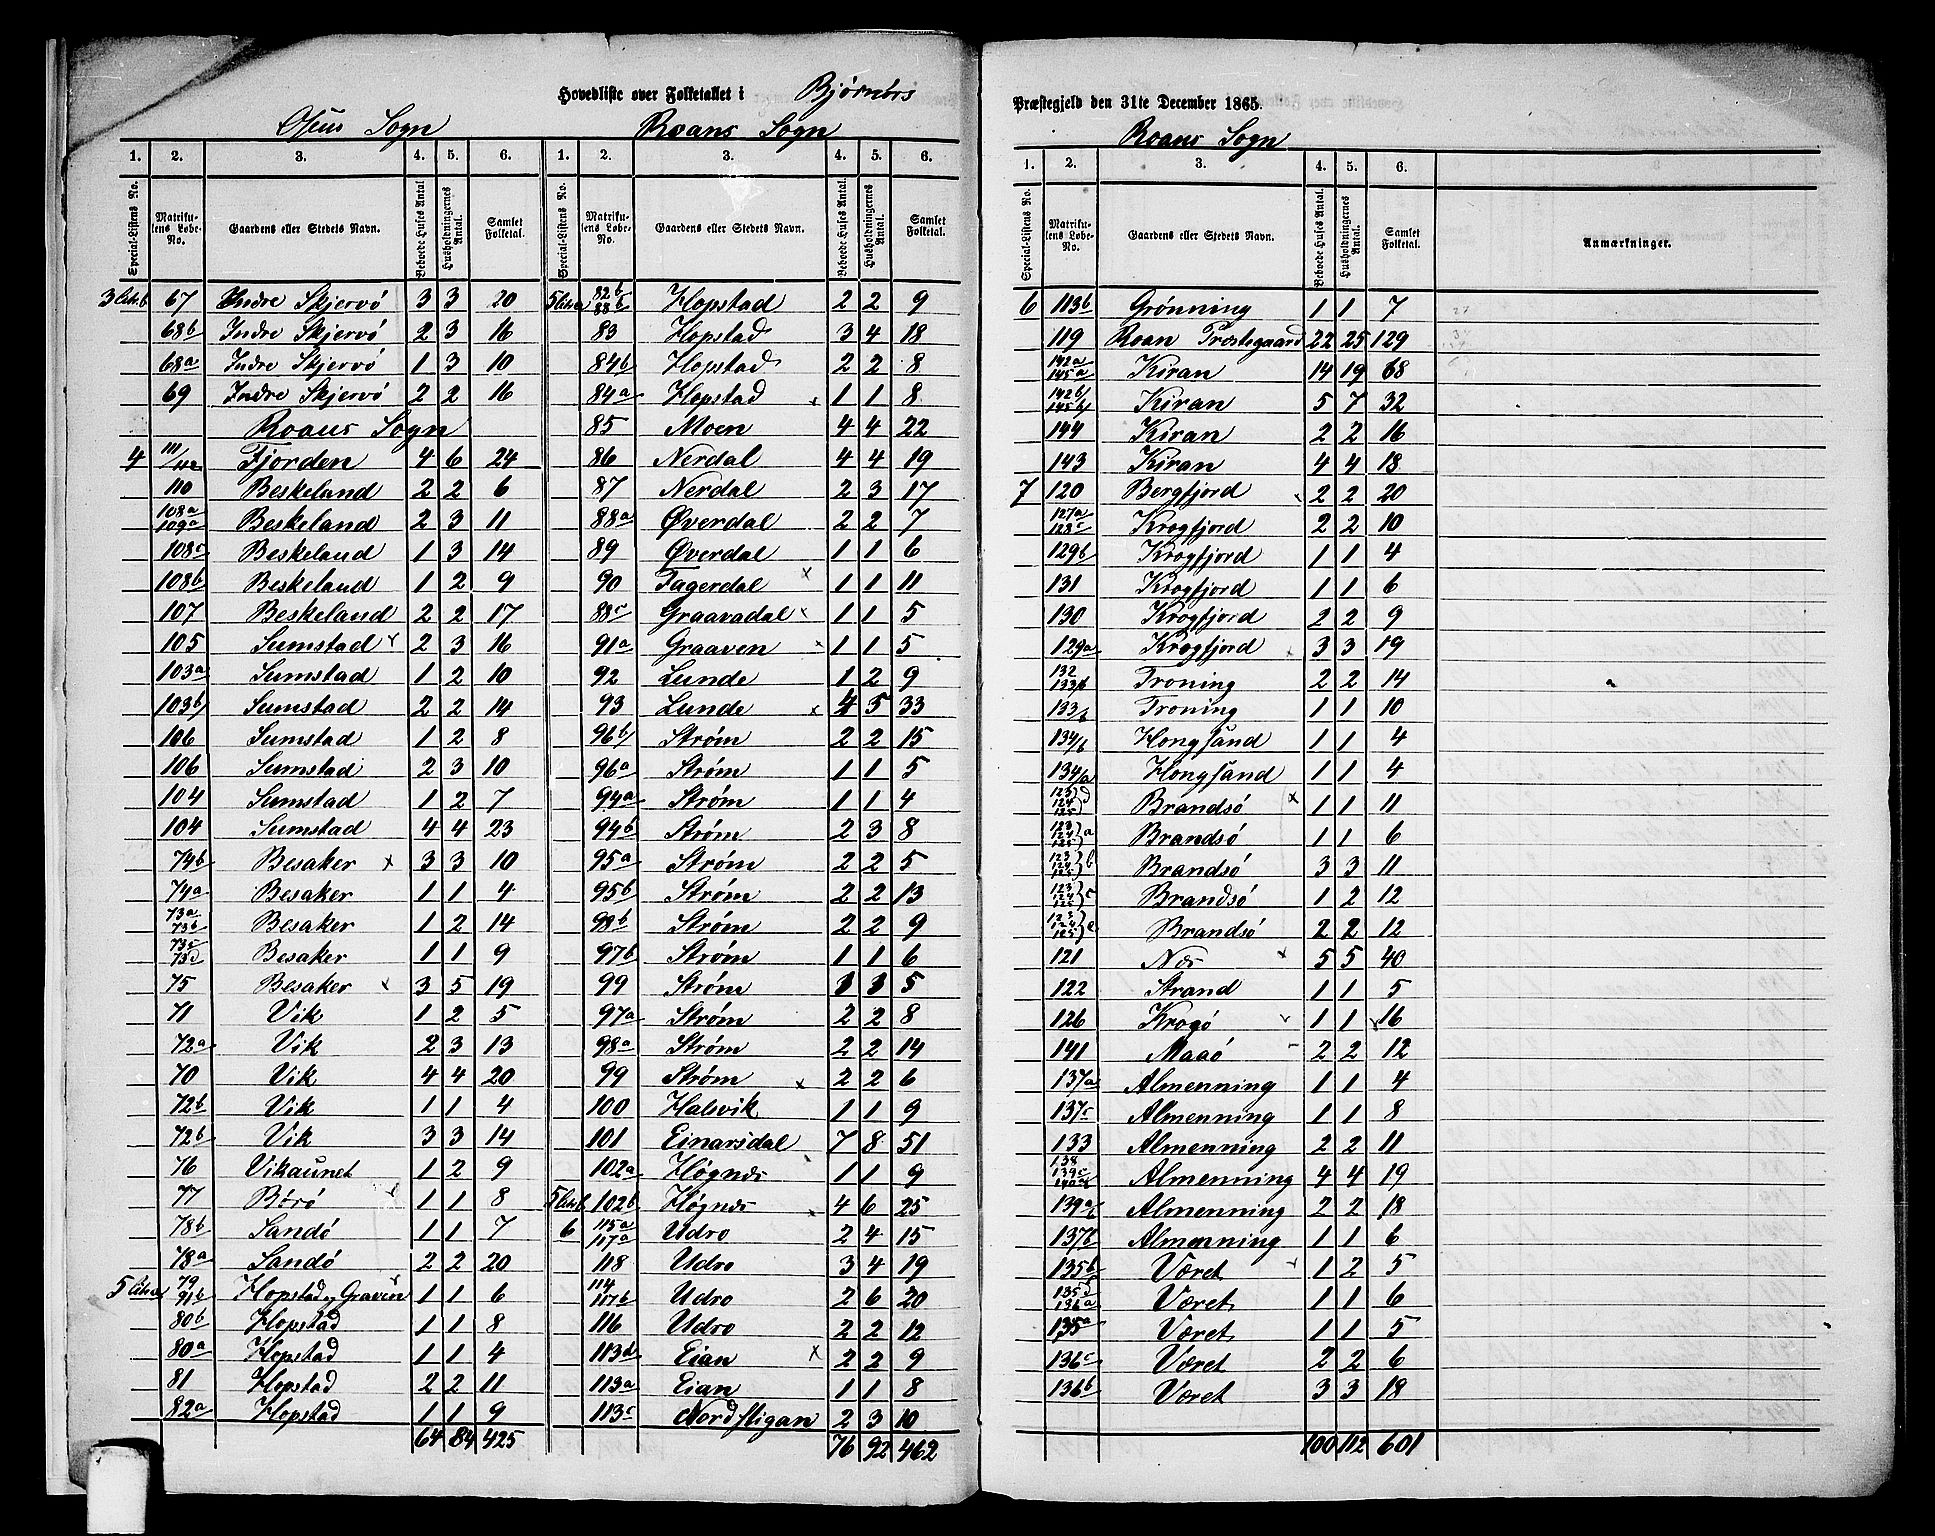 Hovedliste over Folketallet i Bjørnørs
Osens Sogn
Roans Sogn
1. 2. 3. 4. 5. 6. 1. 2. 3. 4. 5. 6.
Special-Listens No. Matrikulens Løbe-No. Gaardens eller Stedets Navn. Beboede Huses Antal Husholdningernes Antal. Samlet Folketal. Special-Listens No. Matrikulens Løbe-No. Gaardens eller Stedets Navn. Beboede Huses Antal. Husholdningernes Antal. Samlet Folketal.
3 Litr. b 67 Indre Skjervø 3 3 20 5 Litr. a 82b 88b Hopstad 2 2 9
68b Indre Skjervø 2 3 16 83 Hopstad 3 4 18
68a Indre Skjervø 1 3 10 84b Hopstad 2 2 8
69 Indre Skjervø 2 2 16 84a Hopstad x 1 1 8
Roans Sogn 85 Moen 4 4 22
4 111/112 Fjorden 4 6 24 86 Nerdal 4 4 19
110 Beskeland 2 2 6 87 Nerdal 2 3 17
108a 109a Beskeland 2 3 11 88a Øverdal 2 2 7
108c Beskeland 1 3 14 89 Øverdal 1 1 6
108b Beskeland 1 2 9 90 Fagerdal x 1 1 11
107 Beskeland 2 2 17 88c Graavadal x 1 1 5
105 Sumstad 2 3 16 91a Graaven x 1 1 5
103a Sumstad 1 2 10 92 Lunde 1 2 9
103b Sumstad 2 2 14 93 Lunde x 4 5 33
106 Sumstad 1 2 8 96b Strøm 2 2 15
106 Sumstad 2 3 10 96a Strøm 1 1 5
104 Sumstad 1 2 7 94a Strøm 1 1 4
104 Sumstad 4 4 23 94b Strøm 2 3 8
74b Besaker x 3 3 10 95a Strøm 2 2 5
74a Besaker 1 1 4 95b Strøm 2 2 13
73a 73b Besaker 1 2 14 98b Strøm 2 2 9
73c 73d Besaker 1 1 9 97b Strøm 1 1 6
75 Besaker x 3 5 19 99 Strøm 1 1 5
71 Vik 1 2 5 97a Strøm 2 2 8
72a Vik 2 3 13 98a Strøm 2 2 14
70 Vik 4 4 20 99 Strøm x 2 2 6
72b Vik 1 1 4 100 Halsvik 1 1 9
72b Vik 3 3 14 101 Einarsdal 7 8 51
76 Vikaunet 1 2 9 102a Høgnæs 1 1 9
77 Børø 1 1 8 5 Litr. b 102b Høgnæs 4 6 25
78b Sandø 1 1 7 6 115a 117a Udro 2 4 15
78a Sandø 2 2 20 118 Udro 3 4 19
5 Litr. a 79 91b Hopstad og Graven 1 1 6 114 117b Udro 2 6 20
80b Hopstad 1 1 8 116 Udro 2 2 12
80a Hopstad 1 1 4 113d Eian x 2 2 9
81 Hopstad 2 2 11 113a Eian 1 1 8
82a Hopstad 1 1 9 113c Nordstigan 2 3 10
64 84 425 76 92 462
Præstegjeld den 31te December 1865.
Roans Sogn
1. 2. 3. 4. 5. 6. 8
Special-Listens No. Matrikulens Løbe-No. Gaardens eller Stedets Navn. Beboede Huses Antal. Husholdningernes Antal. Samlet Folketal. Anmærkninger.
6 113b Grønning 1 1 7
119 Roan Præstegaard 22 25 129
142a 145a Kiran 14 19 68
142b 145b Kiran 5 7 32
144 Kiran 2 2 16
143 Kiran 4 4 18
7 120 Bergfjord 2 2 20
127a 128c Krogfjord 2 2 10
129b Krogfjord 1 1 4
131 Krogfjord 1 1 6
130 Krogfjord 2 2 9
129a Krogfjord 3 3 19
132 133b Troning 2 2 14
133/b Troning 1 1 10
134/b Hongsand 1 1 4
134/a Hongsand 1 1 4
123 124 125 d Brandsø x 1 1 11
123 124 125 a Brandsø 1 1 6
123 124 125 b Brandsø 3 3 11
123 124 125 c Brandsø 1 2 12
123 124 125 e Brandsø 2 2 12
121 Næs 5 5 40
122 Strand 1 1 5
126 Krogø 1 1 16
141 Maaø 2 2 12
137a Almenning 1 1 4
137c Almenning 1 1 8
133 Almenning 2 2 11
138 139c 140a Almenning 4 4 19
139a Almenning 2 2 18
137b Almenning 1 1 6
135b Været 1 2 5
135d 136a Været 1 1 6
135a Været 1 1 5
136c Været 2 2 6
136b Været 3 3 18
100 112 601